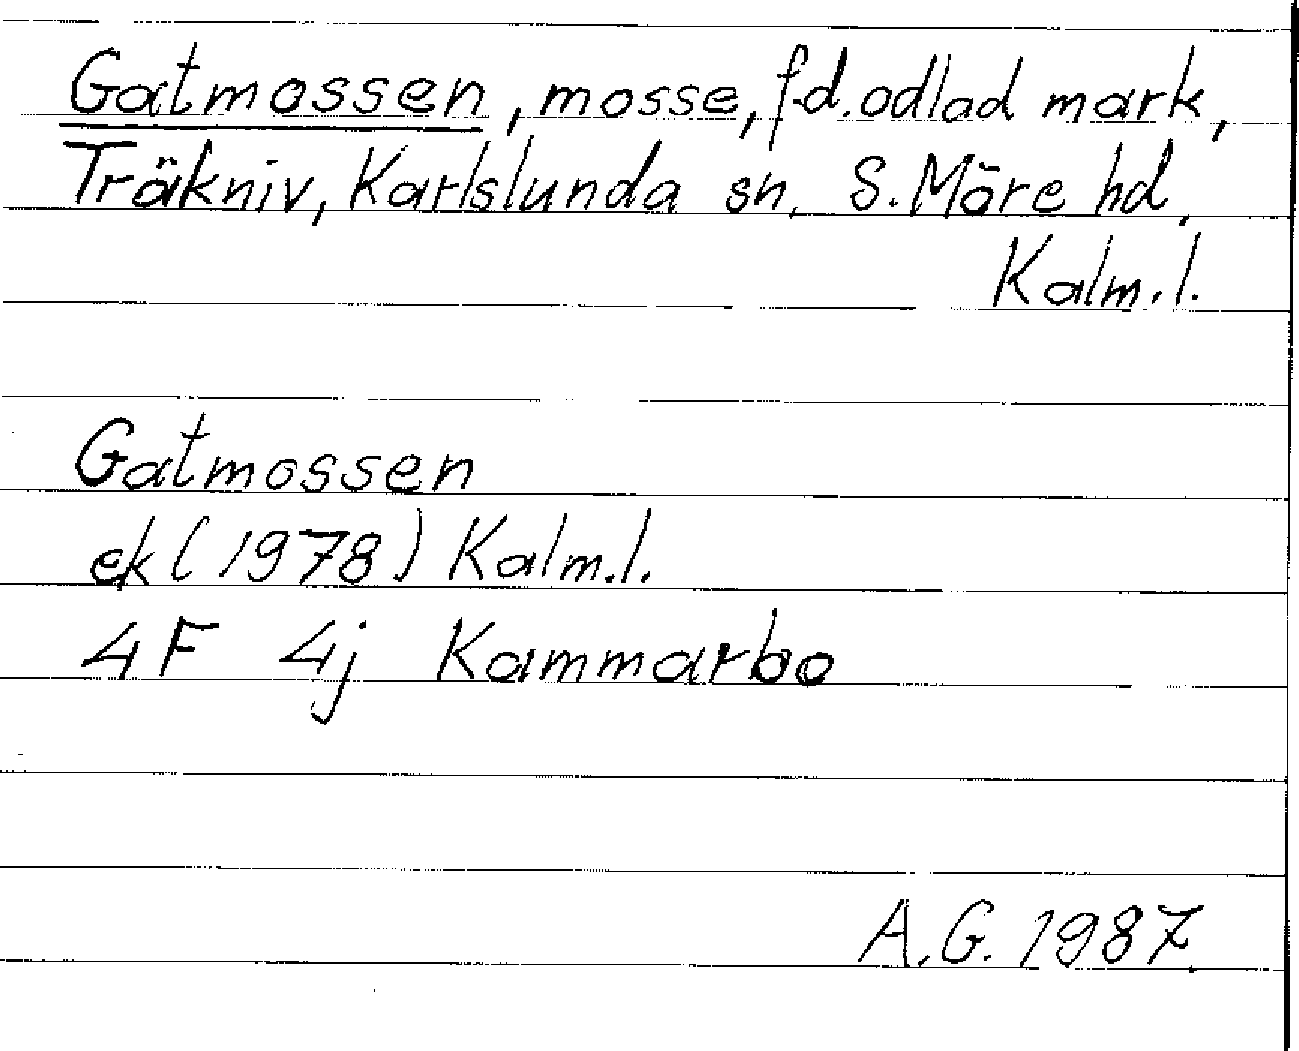 Gatmossen, mosse, f.d. odlad mark,
Träkniv, Karlslunda sn, S. Möre hd,
Kalm.l.
Gatmossen
ek (1978) Kalm.l.
4F 4j Kammarbo
A.G. 1987